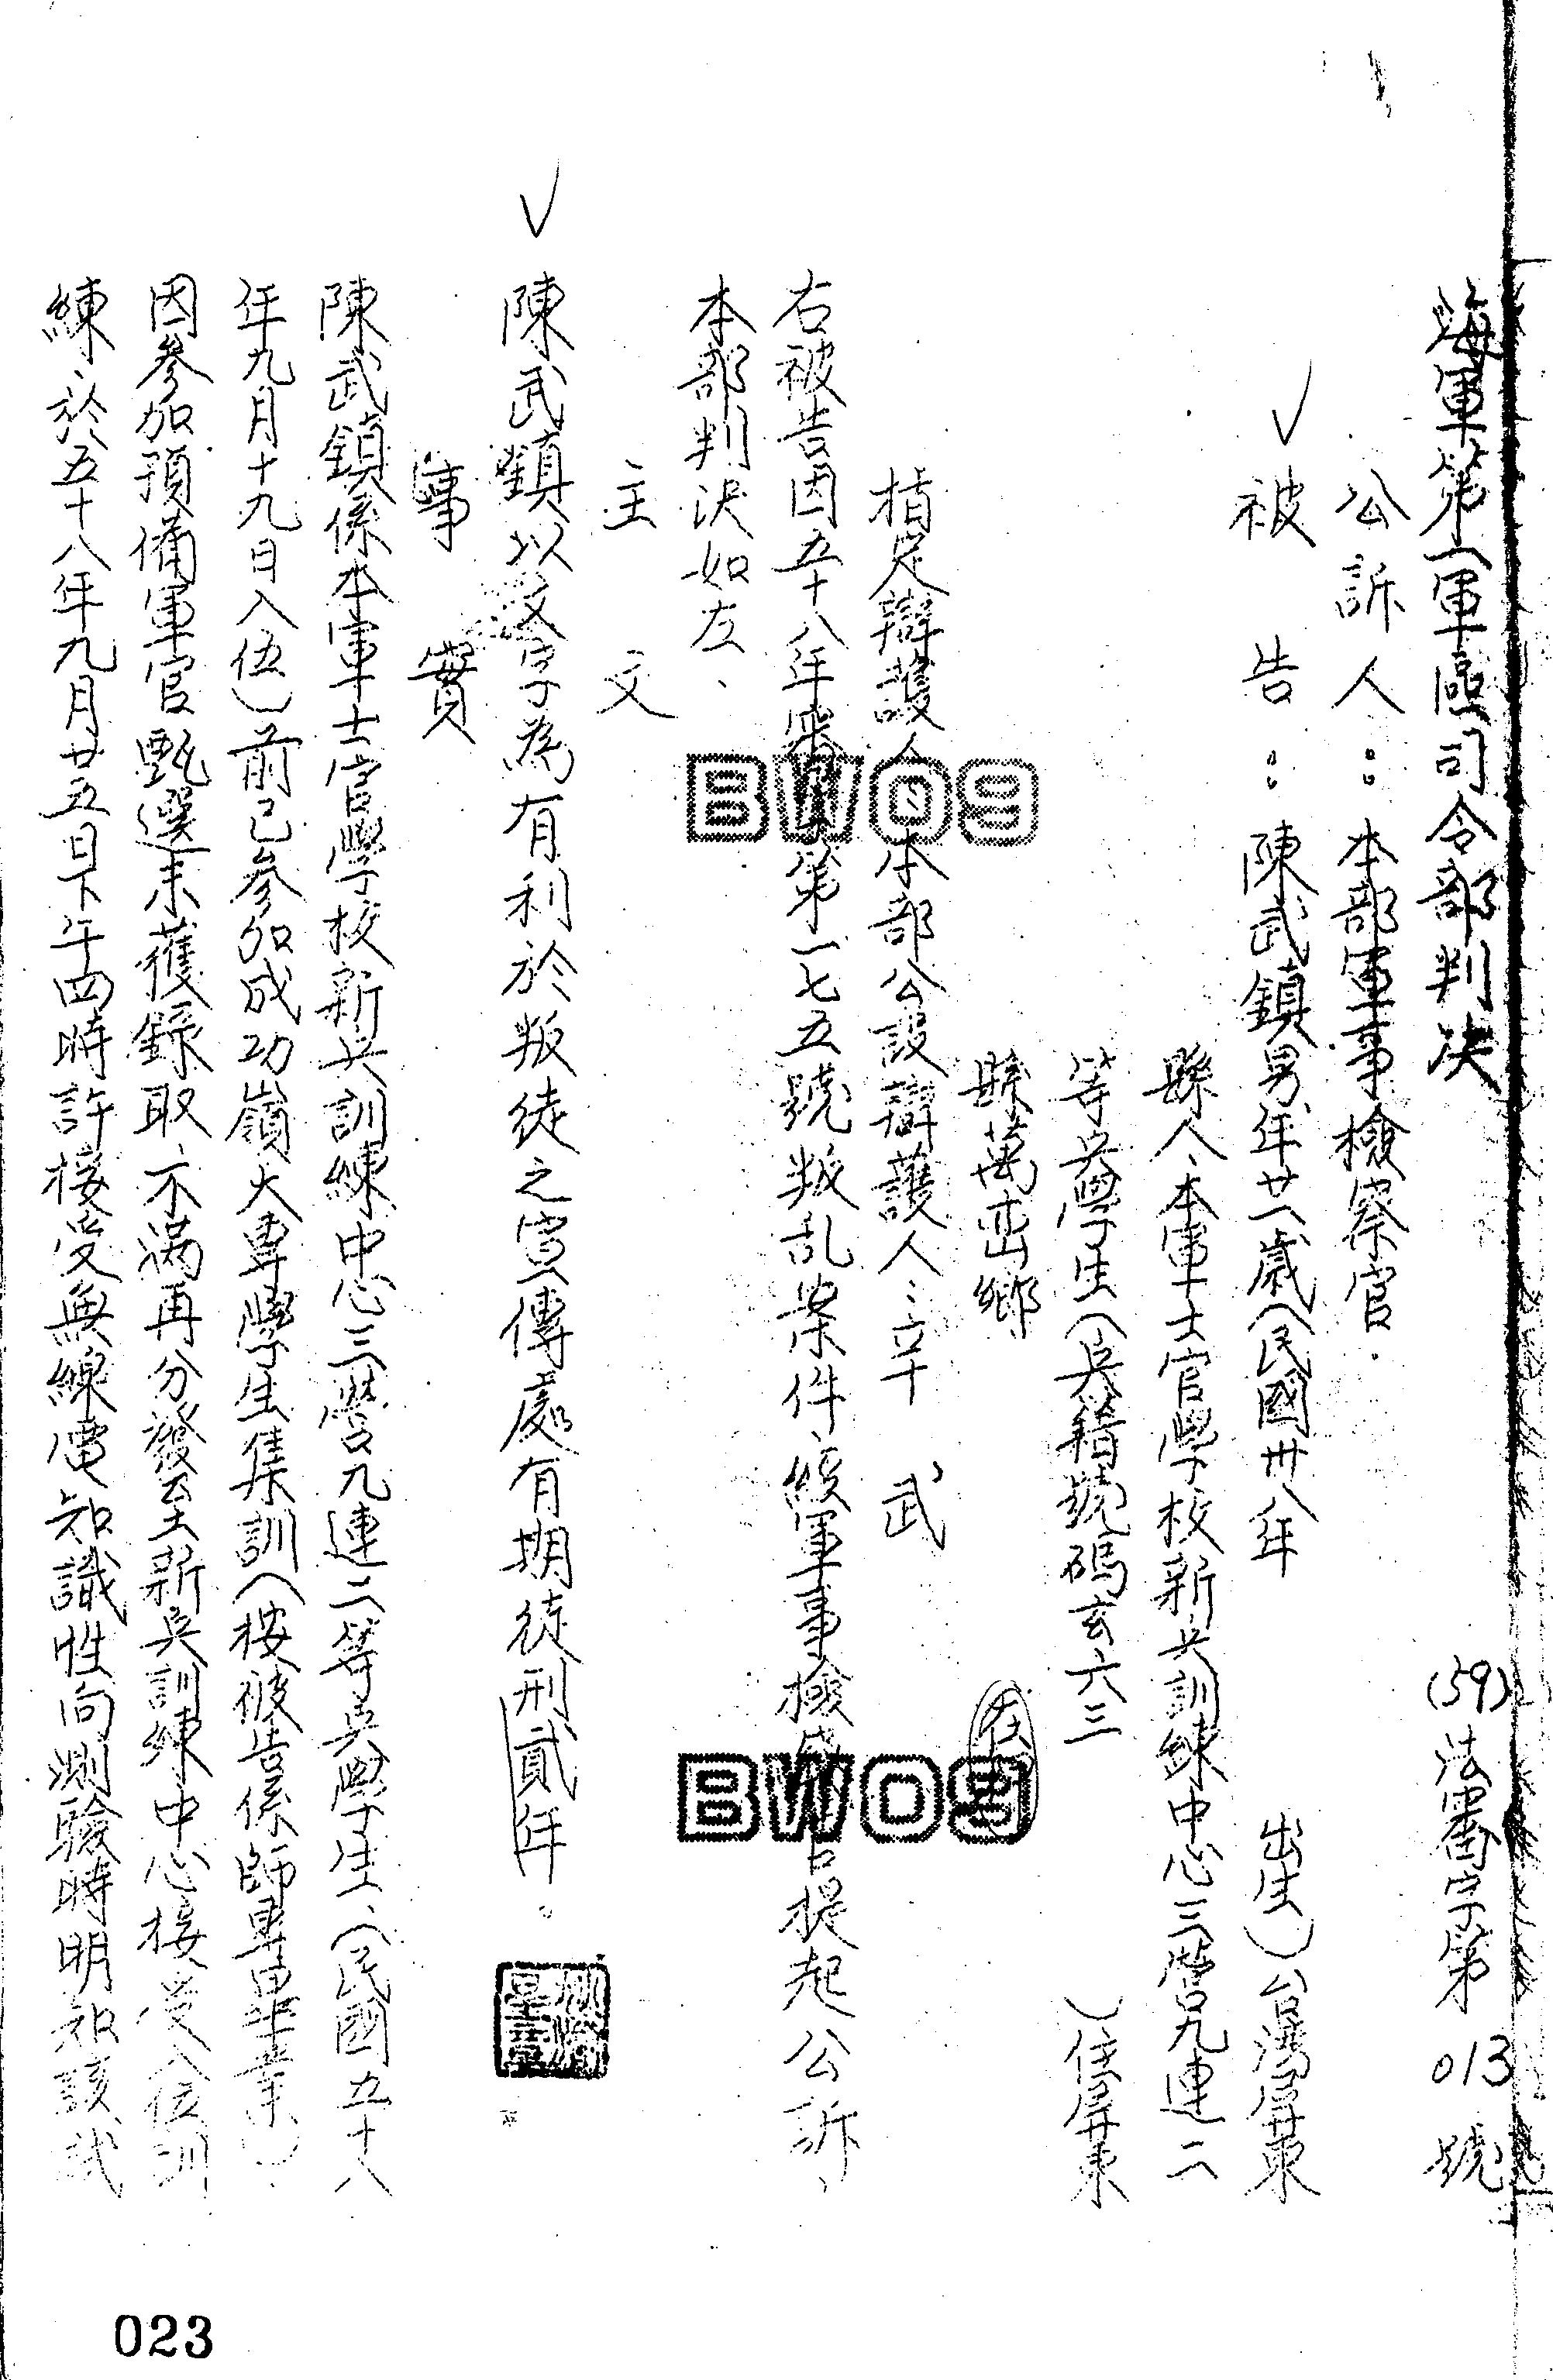 海軍第一軍區司令部判決
(59)法審字第013號
公訴人：本部軍事檢察官.
被告：陳武鎮男年廿一歲(民國卅八年出生)台灣屏東
縣人、本軍士官學校新兵訓練中心三營九連二
等兵學生(兵籍號碼玄六三)住屏東
縣萬巒鄉
指定辯護人：本部公設辯護人：辛武
右被告因五十八年第一七五號叛乱案件、經軍事檢察官提起公訴、
本部判決如左、
主文
陳武鎮以文字為有利於叛徒之宣傳處有期徒刑貳年。
事實
陳武鎮係本軍士官學校新兵訓練中心三營九連二等兵學生、(民國五十八
年九月十九日入伍)前已參加成功嶺大專學生集訓(按被告係師專畢業)、
因參加預備軍官甄選未獲錄取、不滿再分發至新兵訓練中心接受入伍訓
練、於五十八年九月廿五日下午四時許接受無線電知識性向測驗時明知該試
BW09
BW09
023